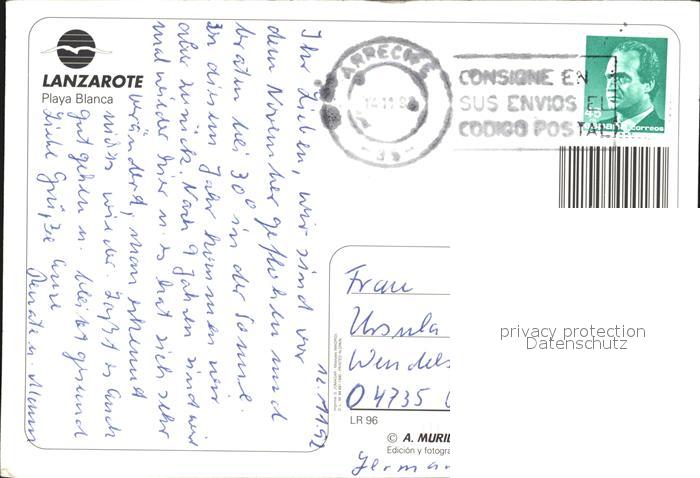 LANZAROTE
Playa Blanca
ARRECIFE
14 11 9
CONSIGNE EN
SUS ENVIOS EL
CODIGO POSTAL
correos
12.11.92
Ihr Lieben, wir sind vor
dem November geflohen und
braten bei 30° in der Sonne.
In diesem Jahr kommen wir
aber zurück. Nach 9 Jahren sind wir
mal wieder hier u. es hat sich sehr
verändert, man erkennt
nichts wieder. Laßt es Euch
gut gehen u. bleibt gesund
Liebe Grüße Eure
Renate u. Mann
Frau
Ursula
Wendel
O 4735
LR 96
© A. MURIL
Edición y fotogra
German
privacy protection
Datenschutz